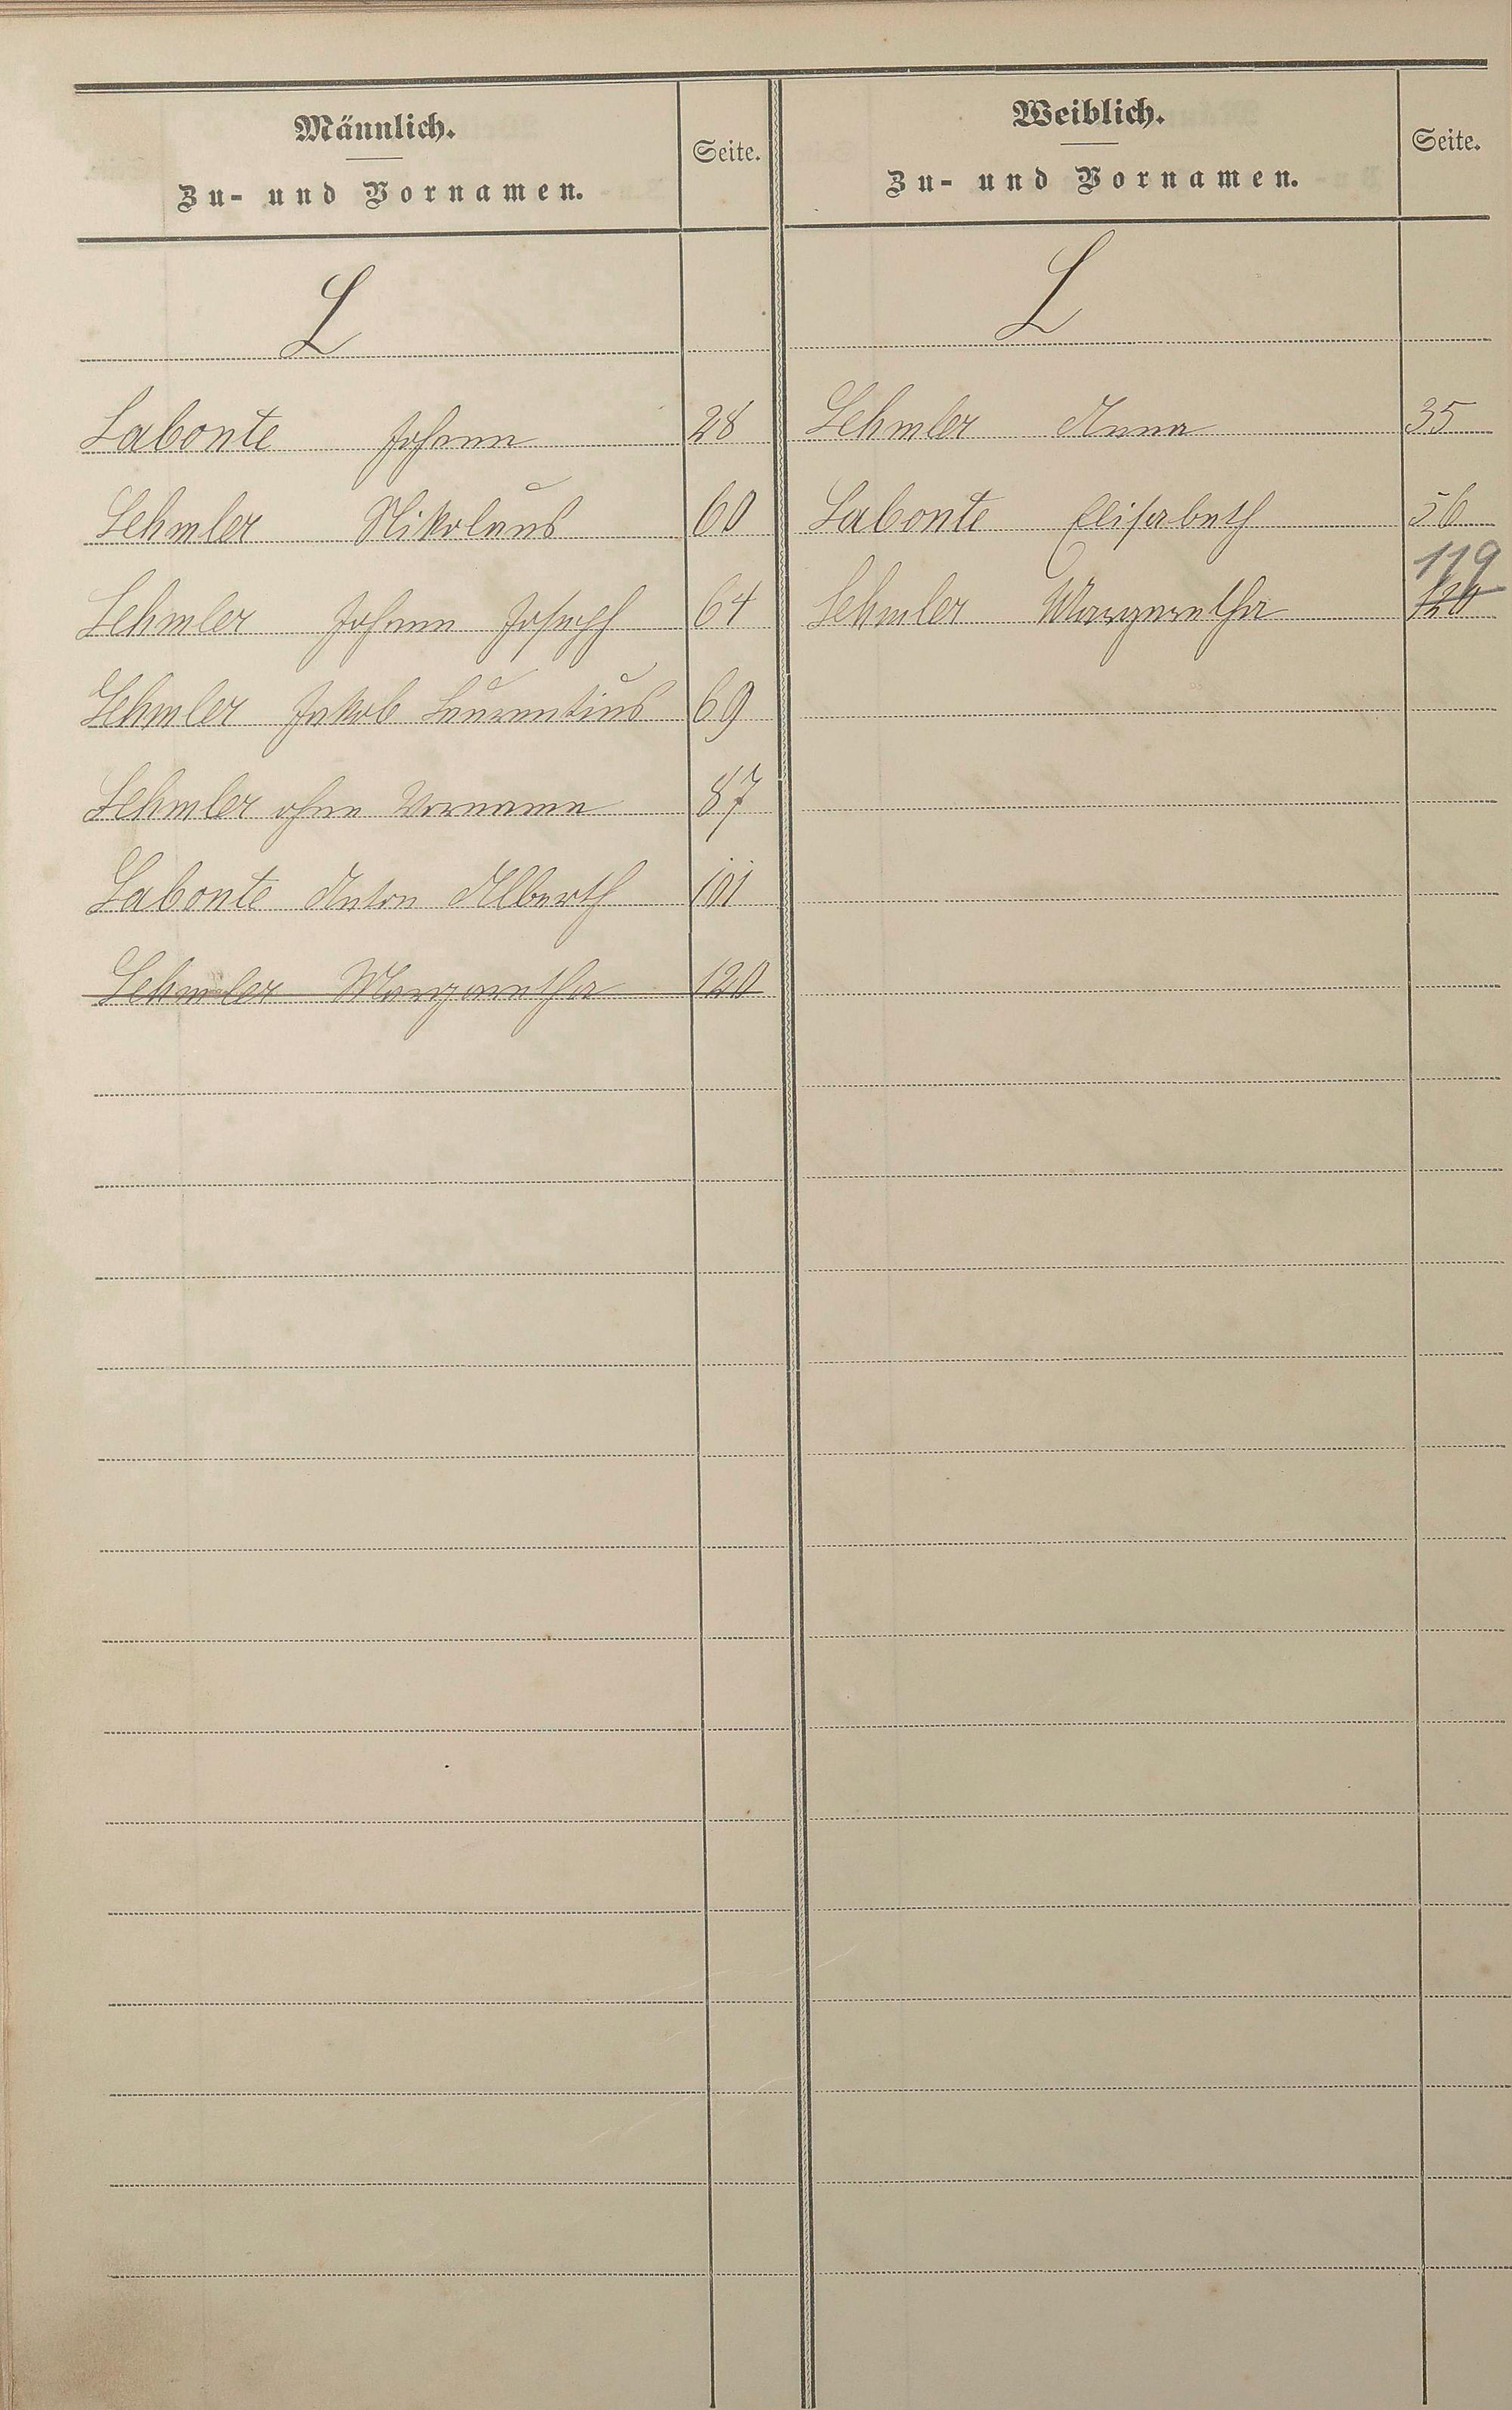 Männlich.
Zu- und Vornamen.
Seite.
Weiblich.
Zu- und Vornamen.
Seite.
L
L
Labonte Johann 28
Lehmler Nikolaus 60
Lehmler Johann Joseph 64
Lehmler Jakob Laurentius 69
Lehmler ohne Vorname 87
Labonte Anton Alberth 101
Lehmler Margaretha 120
Lehmler Anna 35
Labonte Elisabeth 56
119
Lehmler Margaretha 120